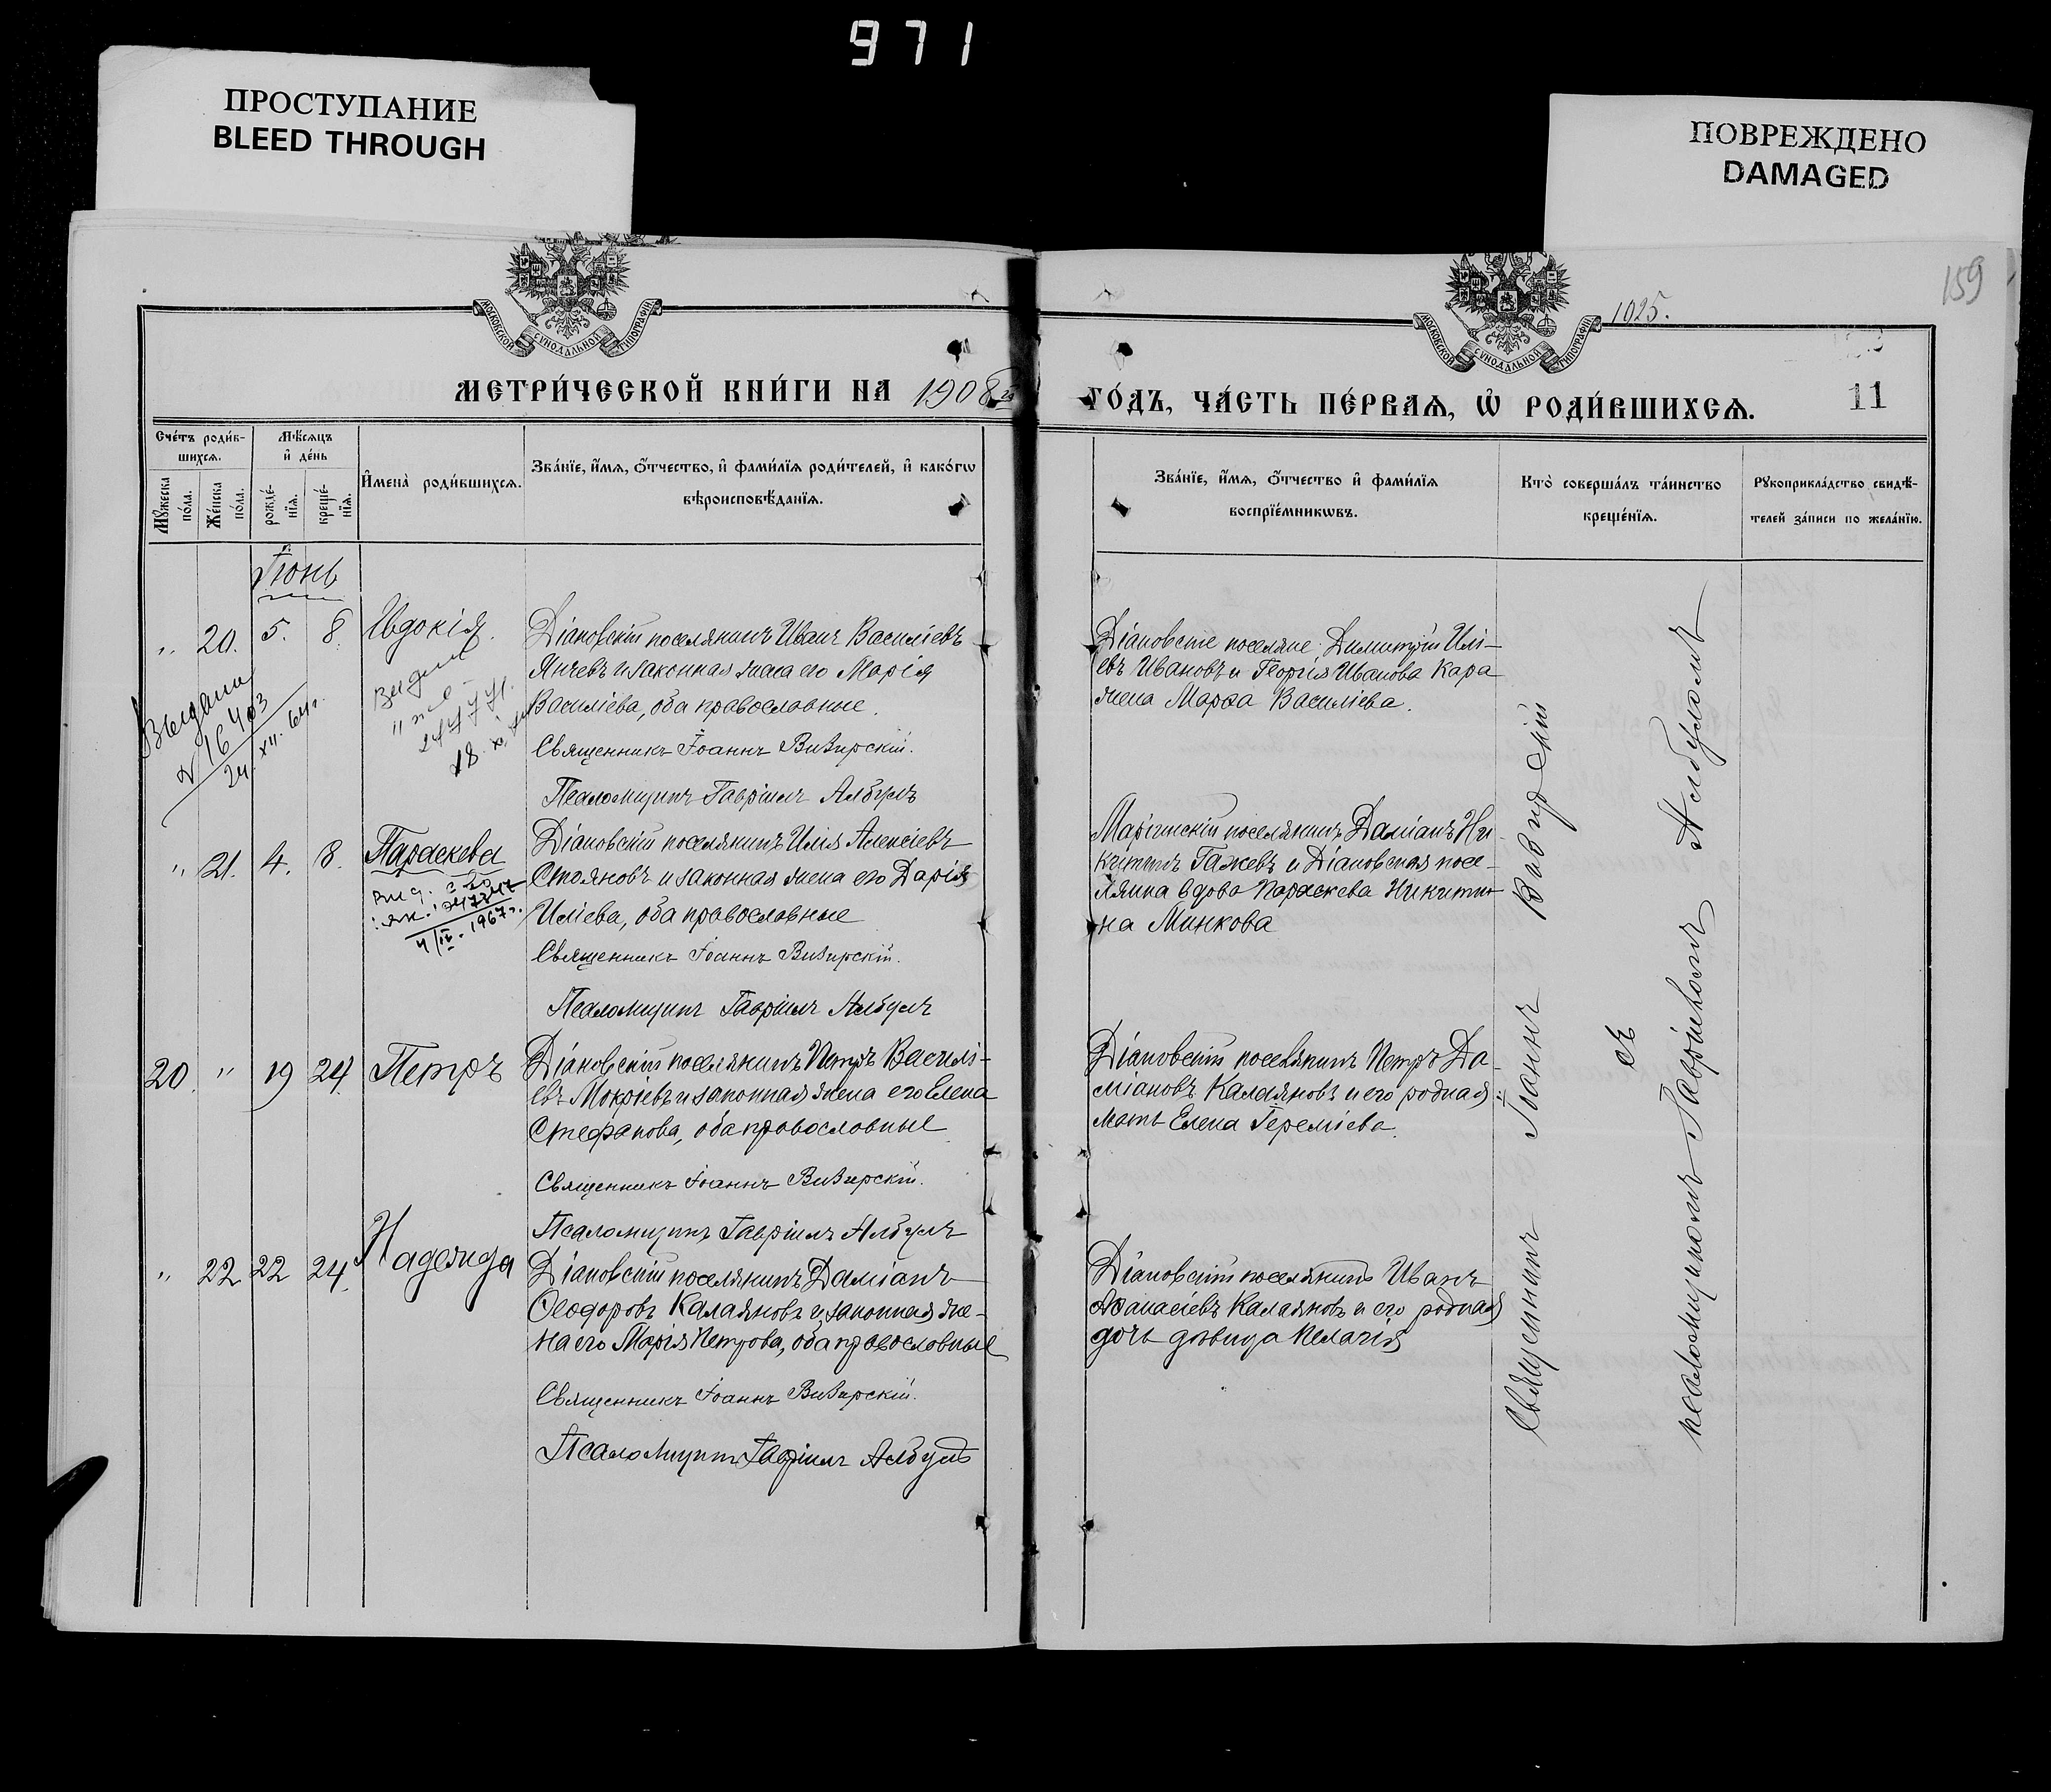 971
ПРОСТУПАНИЕ
BLEED THROUGH
ПОВРЕЖДЕНО
DAMAGED
159
1025.
МОСКОВСКОЙ СѴНОДАЛЬНОЙ ТИПОГРАФІИ
МОСКОВСКОЙ СѴНОДАЛЬНОЙ ТИПОГРАФІИ
МЕТРИ́ЧЕСКОЙ КНИ́ГИ НА 1908
ГО́ДЪ, ЧА́СТЬ ПЕ́РВАѦ, Ѡ҆ РОДИ́ВШИХСѦ.
11
Сче́тъ роди́в-
шихсѧ.
Мꙋ́жеска по́ла.
Же́нска по́ла.
Мѣ́сѧцъ
и҆ де́нь
рожде́-
нїѧ.
креще́-
нїѧ.
И҆мена̀ роди́вшихсѧ.
Зва́нїе, и҆́мѧ, ѻ҆́тчество, и҆ фами́лїѧ роди́телей, и҆ како́гѡ
вѣроисповѣ́данїѧ.
Зва́нїе, и҆́мѧ, ѻ҆́тчество и҆ фами́лїѧ
воспрїе́мникѡвъ.
Кто̀ соверша́лъ та́инство
креще́нїѧ.
Рꙋкоприкла́дство свидѣ́-
телей за́писи по жела́нїю.
Іюнь
" 20. 5. 8. Евдокія.
Діановскій поселянинъ Иванъ Василіевъ
Янчевъ и законная жена его Марія
Василіева, оба православные.
Священникъ Іоаннъ Визирскій.
Псаломщикъ Гавріилъ Албулъ
Діановскіе поселяне: Димитрій Илі-
евъ Ивановъ и Георгія Иванова Кара
жена Марѳа Василіева.
Выдано
№ 16403
24. XII. 64 г.
" 21. 4. 8. Параскева
4/IV. 1967 г.
Діановскій поселянинъ Илія Алексіевъ
Стояновъ и законная жена его Дарія
Иліева, оба православные
Священникъ Іоаннъ Визирскій.
Псаломщикъ Гавріилъ Албулъ
Маріинскій поселянинъ Даміанъ Ни-
китинъ Гажевъ и Діановская посе-
лянка вдова Параскева Никити-
на Минкова
20. " 19 24. Петръ
Діановскій поселянинъ Петръ Василі-
евъ Мокріевъ и законная жена его Елена
Стефанова, оба православные
Священникъ Іоаннъ Визирскій.
Псаломщикъ Гавріилъ Албулъ
Діановскій поселянинъ Петръ Да-
міановъ Калаяновъ и его родная
мать Елена Іереміева.
" 22 22 24. Надежда
Діановскій поселянинъ Даміанъ
Ѳеодоровъ Калаяновъ и законная же-
на его Марія Петрова, оба православные
Священникъ Іоаннъ Визирскій.
Псаломщикъ Гавріилъ Албулъ
Діановскій поселянинъ Иванъ
Аѳанасіевъ Калаяновъ и его родная
дочь дѣвица Пелагія
Священникъ Іоаннъ Визирскій
съ
псаломщикомъ Гавріиломъ Албуломъ